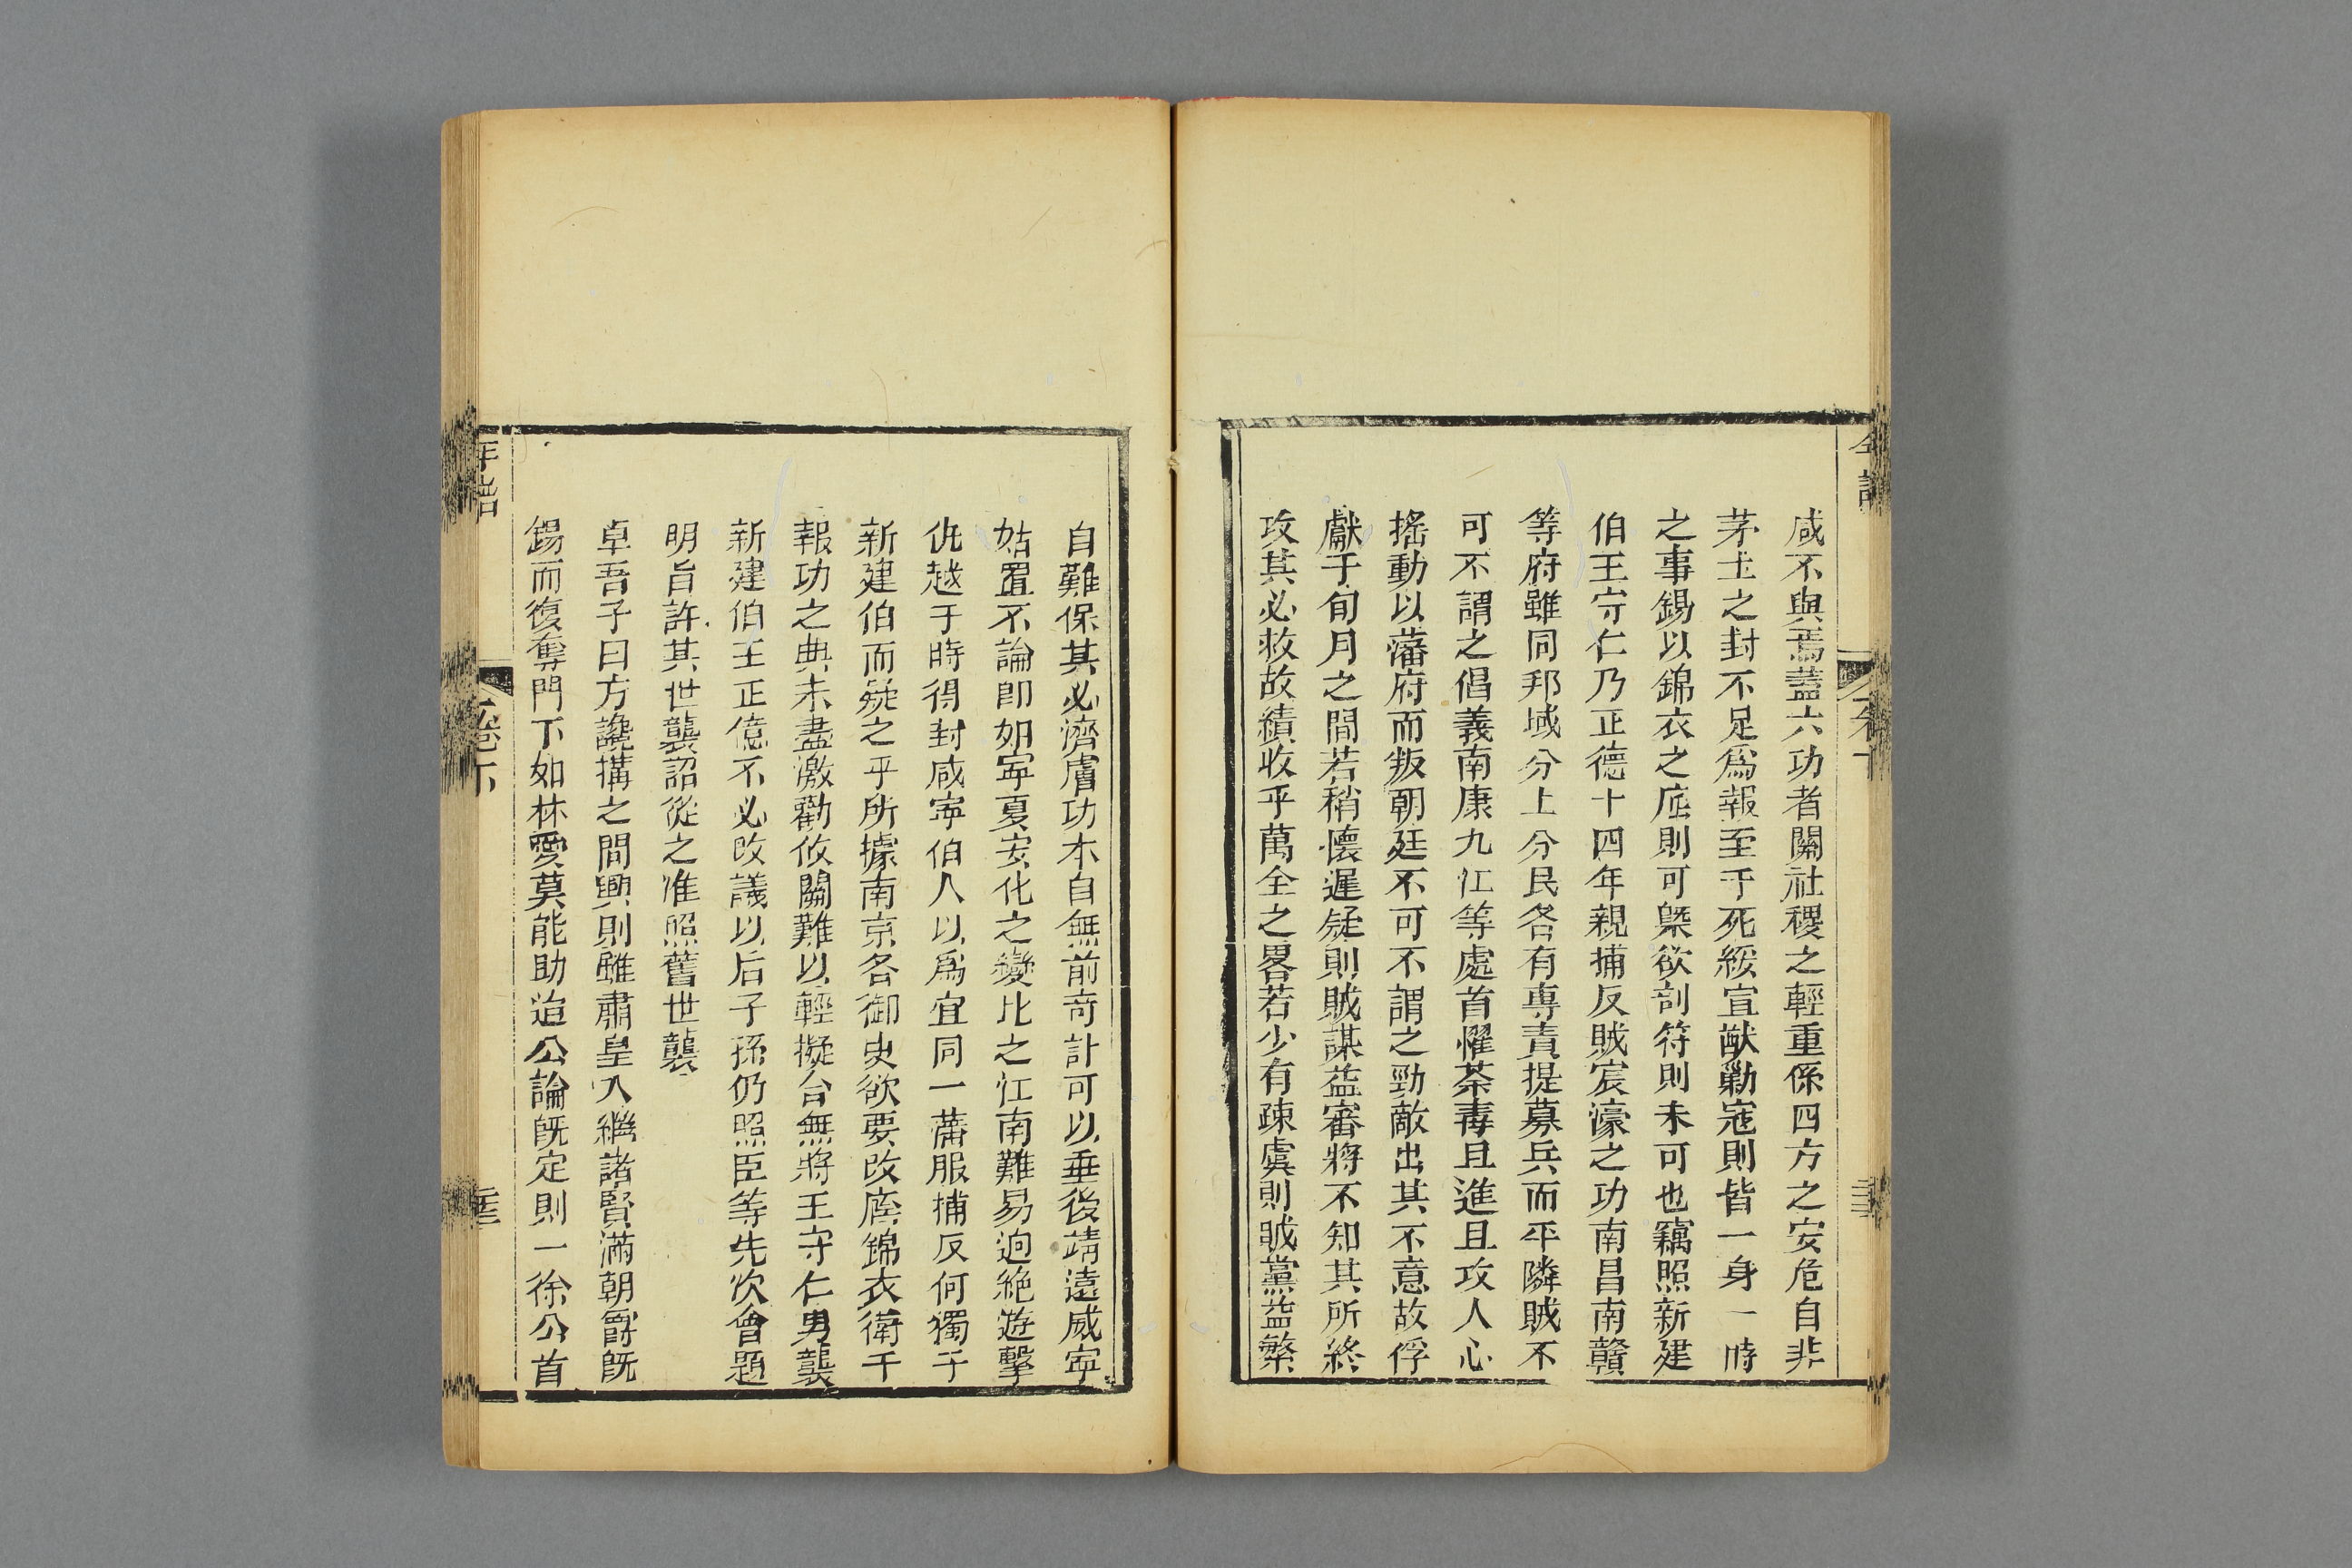 咸不與焉蓋六功者關社稷之輕重係四方之安危自非
茅土之封不足爲報至于死綏宣猷勦寇則皆一身一時
之事錫以錦衣之廕則可槩欲剖符則未可也竊照新建
伯王守仁乃正德十四年親捕反賊宸濠之功南昌南贛
等府雖同邦域分土分民各有專責提募兵而平隣賊不
可不謂之倡義南康九江等處首懼荼毒且進且攻人心
搖動以藩府而叛朝廷不可不謂之勁敵出其不意故俘
獻于旬月之間若稍懷遲疑則賊謀益審將不知其所終
攻其必救故績收乎萬全之畧若少有疎虞則賊黨益繁
自難保其必濟膚功本自無前竒計可以垂後靖遠威寧
姑置不論卽如寧夏安化之變比之江南難易逈絶遊擊
仇越于時得封咸寧伯人以爲宜同一藩服捕反何獨于
新建伯而疑之乎所據南京各御史欲要改廕錦衣衛千
報功之典未盡激勸攸關難以輕擬合無將王守仁男襲
新建伯王正億不必改議以后子孫仍照臣等先次會題
明旨許其世襲詔從之准照舊世襲
卓吾子曰方讒搆之間興則雖肅皇入繼諸賢滿朝爵旣
錫而復奪門下如林愛莫能助迨公論旣定則一徐公首
年譜
卷下